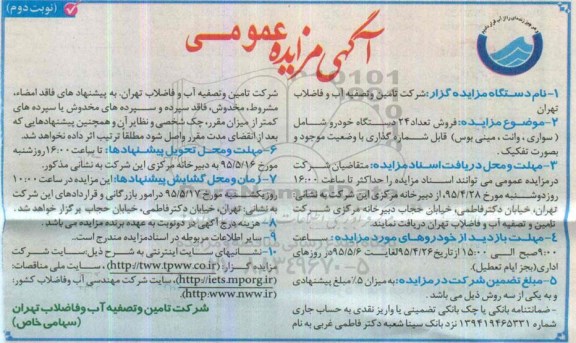 (نوبت دوم)
آگهی مزایده عمومی
۱-نام دستگاه مزایده گزار: شرکت تامین و تصفیه آب و فاضلاب
تهران
۲-موضوع مزایده: فروش تعداد ۲۴ دستگاه خودرو شامل
( سواری ، وانت ، مینی بوس) قابل شماره گذاری با وضعیت موجود و
بصورت تفکیک.
۳-مهلت و محل دریافت اسناد مزایده: متقاضیان شرکت
در مزایده عمومی می توانند اسناد مزایده را حداکثر تا ساعت ۱۶:۰۰
روز دوشنبه مورخ ۹۵/۴/۲۸، از دبیرخانه مرکزی این شرکت به نشانی
تهران، خیابان دکتر فاطمی، خیابان حجاب دبیرخانه مرکزی شرکت
تامین و تصفیه آب و فاضلاب تهران دریافت نمایند.
۴-مهلت بازدید از خودروهای مورد مزایده: ساعت
۹:۰۰ صبح الی ۱۵:۰۰ از تاریخ ۹۵/۴/۲۶ لغایت ۹۵/۵/۶ در روزهای
اداری (بجز ایام تعطیل).
۵-مبلغ تضمین شرکت در مزایده: به میزان ۵٪ مبلغ پیشنهادی
و به یکی از سه روش ذیل می باشد.
- ضمانتنامه بانکی یا چک بانکی تضمینی یا واریز نقدی به حساب جاری
شماره ۱۳۹۴۱۹۴۶۵۳۳۱ نزد بانک سینا شعبه دکتر فاطمی غربی به نام
شرکت تامین و تصفیه آب و فاضلاب تهران. به پیشنهاد های فاقد امضاء،
مشروط، مخدوش، فاقد سپرده و سپرده های مخدوش یا سپرده های
کمتر از میزان مقرر، چک شخصی و نظایر آن و همچنین پیشنهادهایی که
بعد از انقضای مدت مقرر واصل شود مطلقا ترتیب اثر داده نخواهد شد.
۶-مهلت و محل تحویل پیشنهادها: تا ساعت ۱۶:۰۰ روز شنبه
مورخ ۹۵/۵/۱۶ به دبیرخانه مرکزی این شرکت به نشانی مذکور.
۷-زمان و محل گشایش پیشنهادها: این مزایده در ساعت ۱۰:۰۰
روز یکشنبه مورخ ۹۵/۵/۱۷ در امور بازرگانی و قراردادهای این شرکت
به نشانی: تهران، خیابان دکتر فاطمی، خیابان حجاب برگزار خواهد شد.
۸-هزینه درج آگهی در دو نوبت به عهده برنده مزایده می باشد.
۹- سایر اطلاعات مربوطه در اسناد مزایده مندرج است.
۱۰-نشانیهای سایت اینترنتی به شرح ذیل: سایت شرکت
مزایده گزار: (http://tww.tpww.co.ir)، سایت ملی مناقصات:
(http://iets.mporg.ir)، سایت شرکت مهندسی آب و فاضلاب کشور:
(http:www.nww.ir).
شرکت تامین و تصفیه آب و فاضلاب تهران
(سهامی خاص)